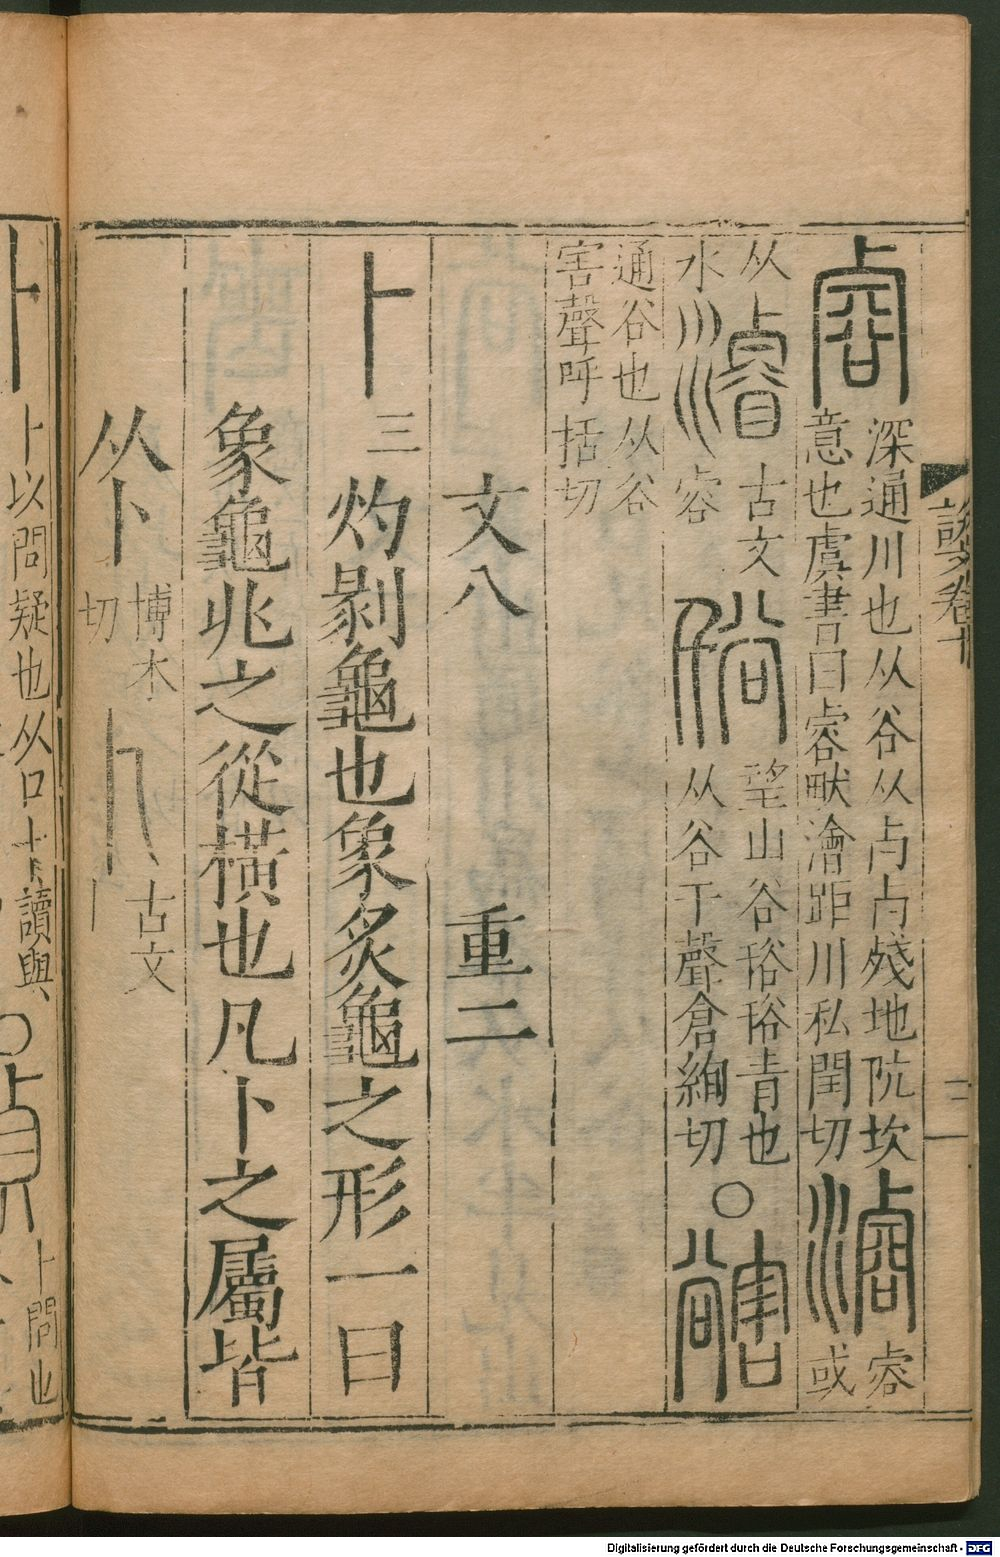 說文卷十
深通川也从谷从歺歺殘地阬坎
意也虞書曰睿畎澮距川私閏切
睿或
从
水
古文
睿
望山谷谸谸青也
从谷千聲倉絢切
○
通谷也从谷
害聲呼括切
文八 重二
卜 三 灼剝龜也象炙龜之形一曰
象龜兆之從橫也凡卜之屬皆
从卜 博木
切
古文
卜
卜以問疑也从口卜讀與
○
卜問也
Digitalisierung gefördert durch die Deutsche Forschungsgemeinschaft - DFG